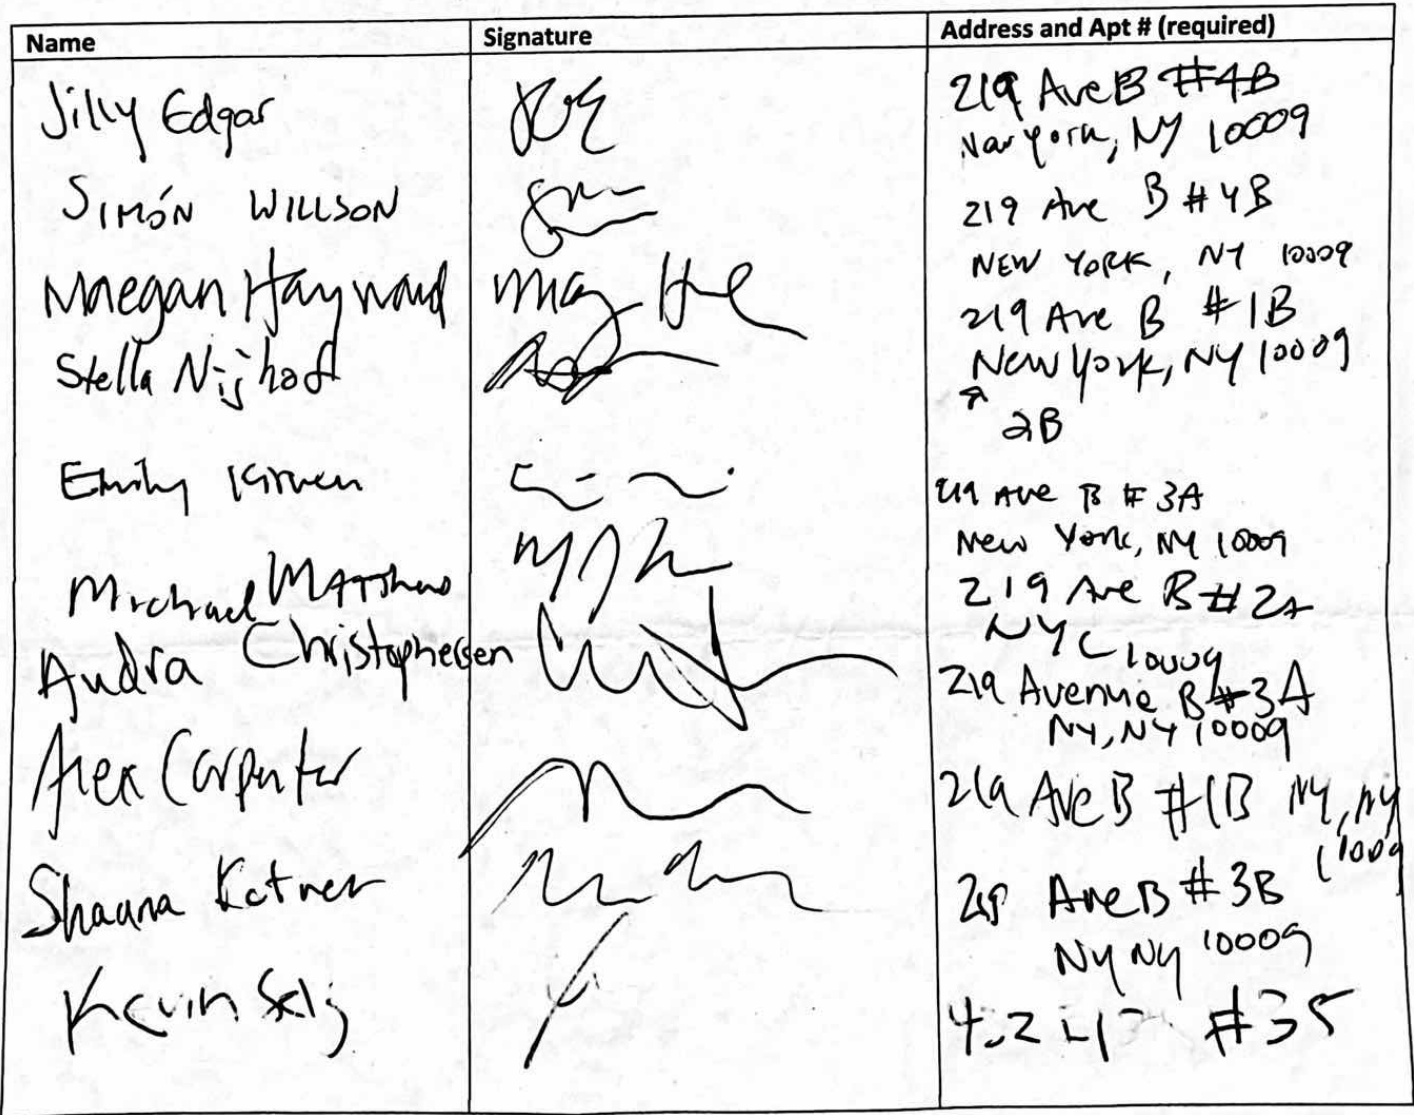 Name Signature Address and Apt # (required)
Jilly Edgar 219 Ave B #4B
New York, NY 10009
SIMÓN WILLSON 219 Ave B #4B
NEW YORK, NY 10009
Maegan Hayward 219 Ave B #1B
Stella Nijhof New York, NY 10009
2B
Emily Kirven 219 Ave B #3A
New York, NY 10009
Michael Matthews 219 Ave B #2A
NYC 10009
Audra Christophersen 219 Avenue B #3A
NY, NY 10009
Alex Carpenter 219 Ave B #1B NY, NY
10009
Shauna Ave B #3B
NY NY 10009
Kevin